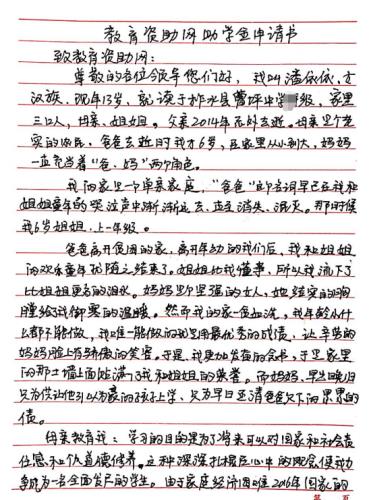 教育资助网助学金申请书
致教育资助网:
尊敬的各位领导您们好,我叫潘依依,女
汉族,现年13岁,就读于柞水县营坪中学 级,家里
三口人,母亲、姐姐。父亲2014年在外去逝。母亲是个老
实的农民,爸爸去逝时我才6岁,在家里从小到大,妈妈
一直充当着“爸、妈”两个角色。
我的家是一个单亲家庭,“爸爸”的名词早已在我和
姐姐童年的哭泣声中渐渐远去、直至消失、泯灭。那时候
我6岁姐姐上一年级。
爸爸离开贫困的家,离开年幼的我们后,我和姐姐
的欢乐童年就随之结束了。姐姐比我懂事,所以我流下了
比姐姐更多的泪水。妈妈是坚强的女人,她结实的胸
膛给我御寒的温暖。然而我的家一贫如洗,我年龄小什
么都不能做,我唯一能做的就是用最优秀的成绩,让辛劳的
妈妈脸上有骄傲的笑容。于是,我更加发奋的念书,于是家里
的那土墙上面贴满了我和姐姐的荣誉。而妈妈,早出晚归
只为供让他引以为豪的孩子上学、只为早日还清爸爸欠下的累累的
债。
母亲教育我:学习的目的是为了将来可以对国家和社会责
任感和个人道德修养。这种深深扎根在心中的观念使我努力
争取为一名全面发展的学生。由于家庭经济困难2016年国家的
第 页